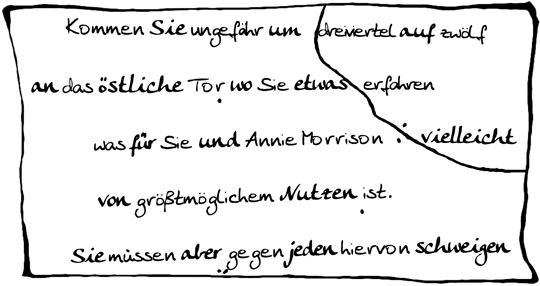 Kommen Sie ungefähr um dreiviertel auf zwölf
an das östliche Tor wo Sie etwas erfahren
was für Sie und Annie Morrison vielleicht
von größtmöglichem Nutzen ist.
Sie müssen aber gegen jeden hiervon schweigen